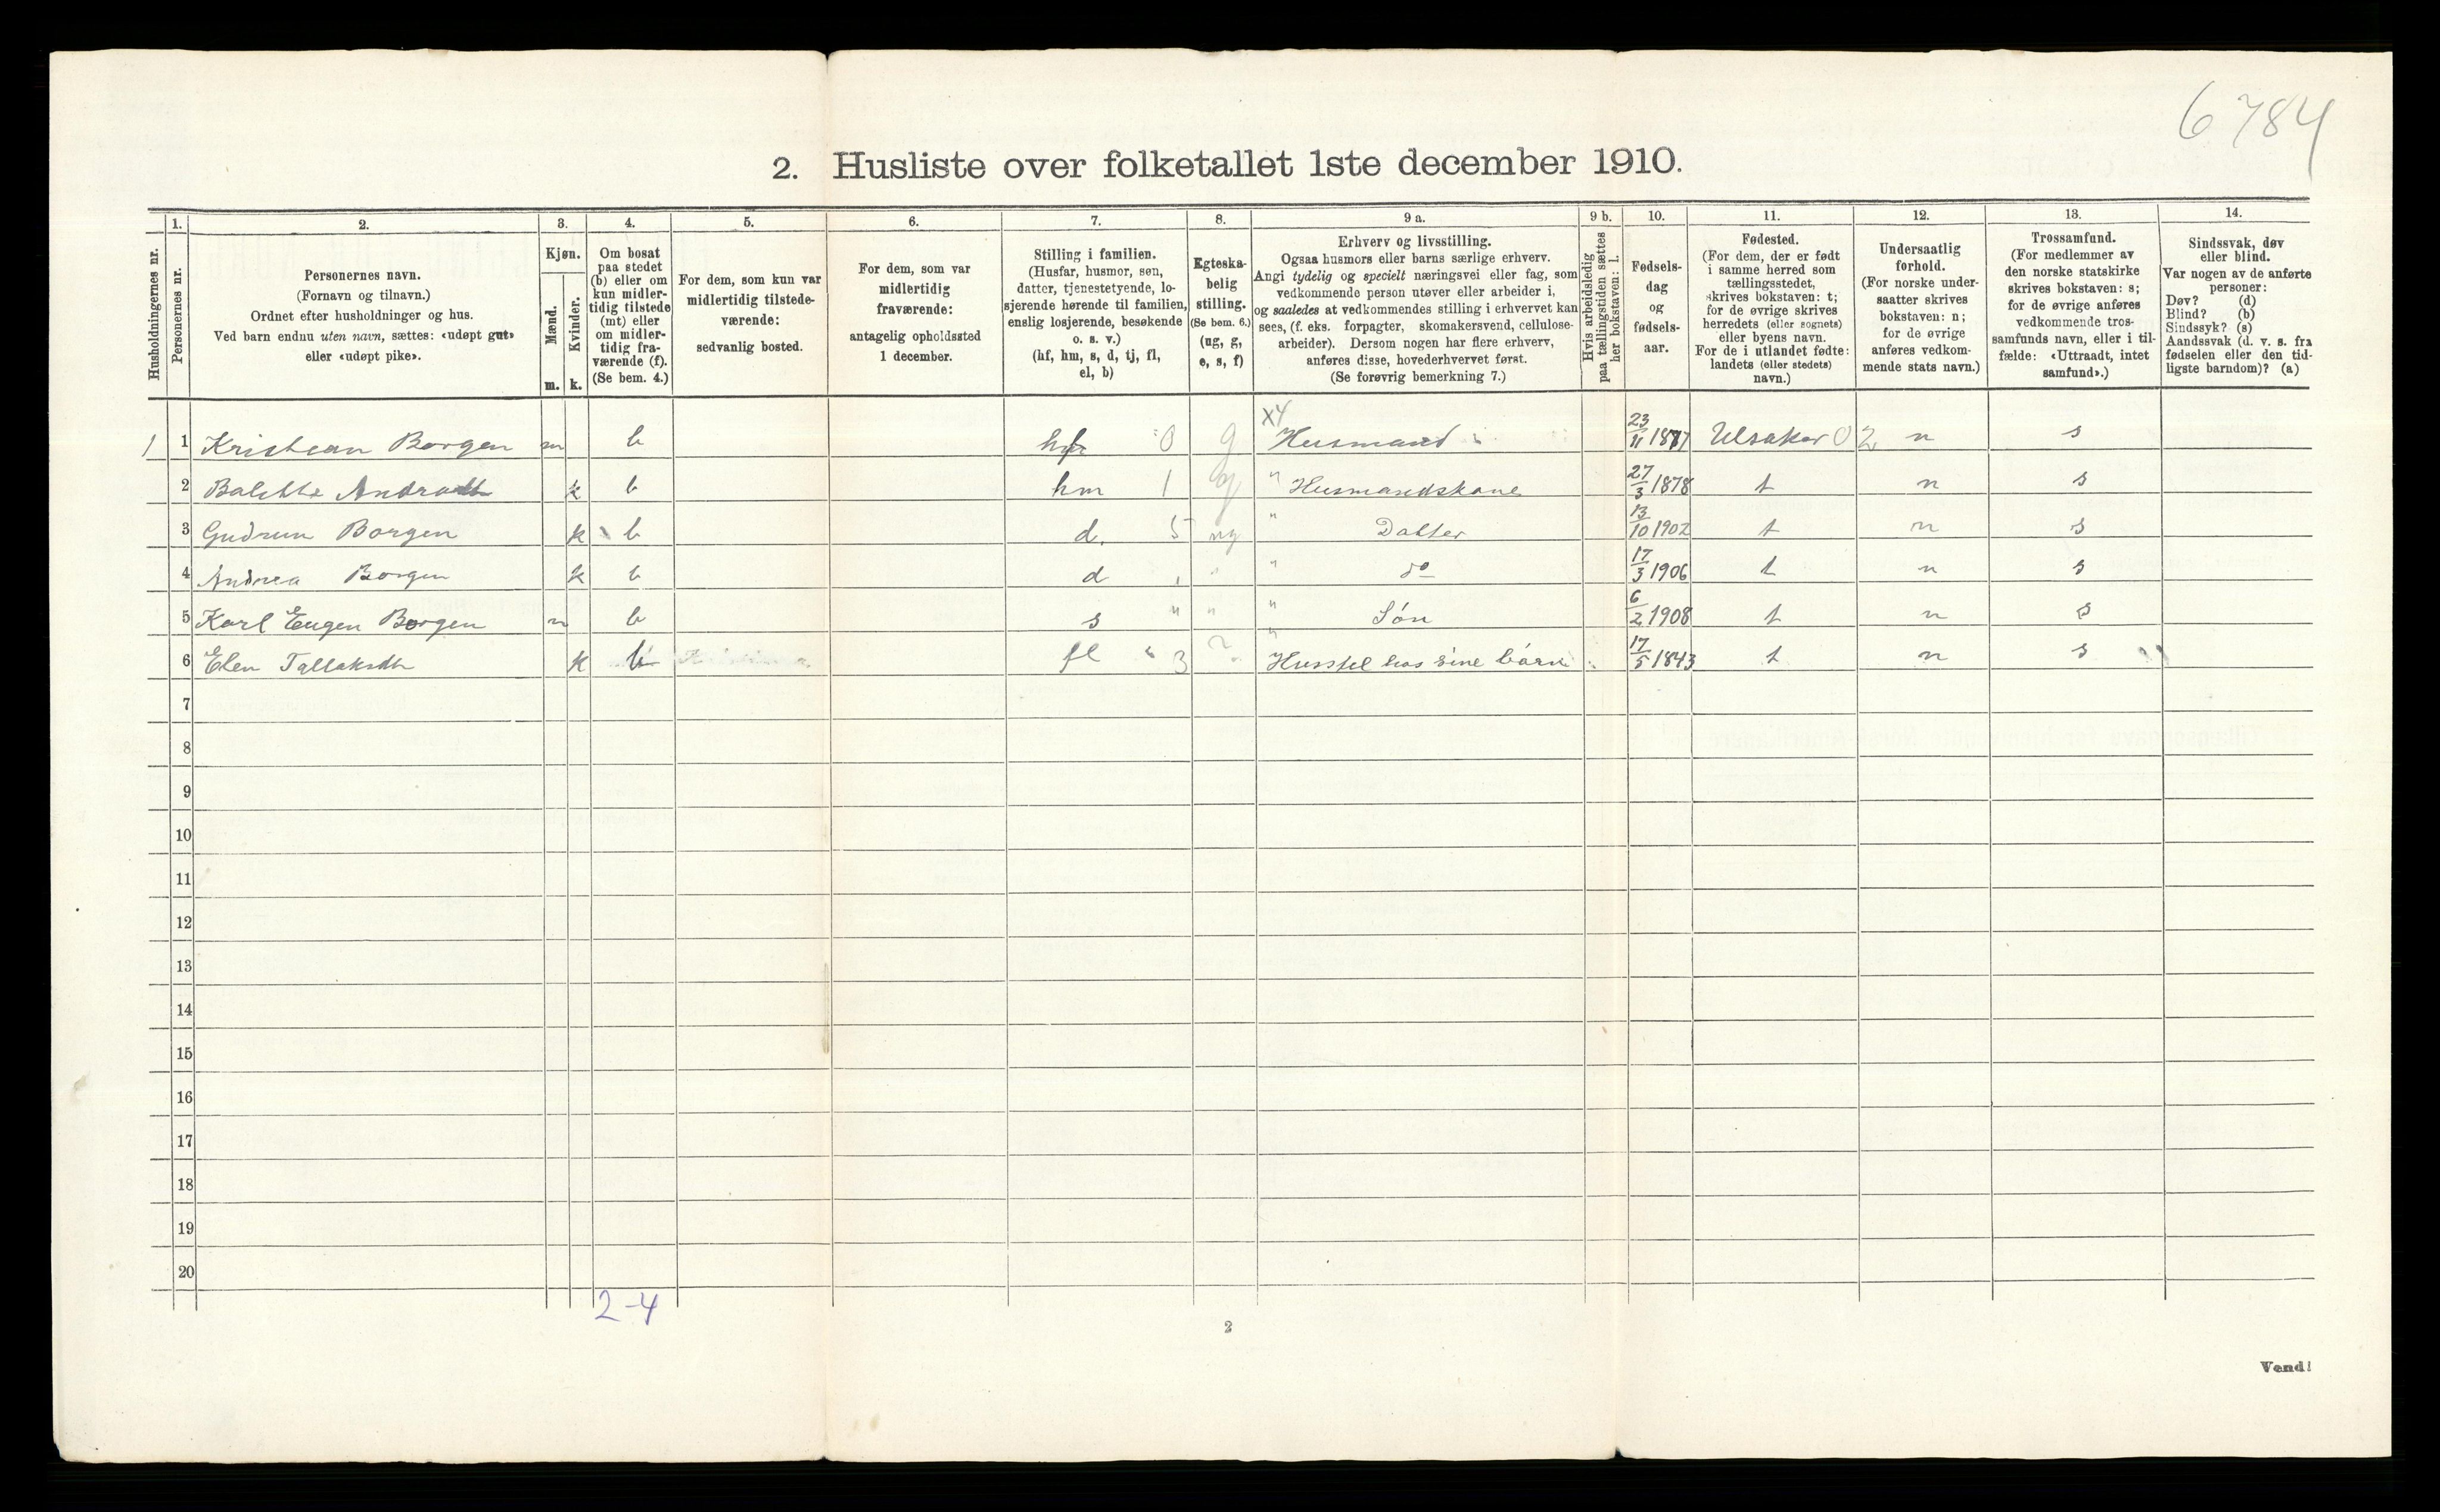 6784
2. Husliste over folketallet 1ste december 1910.
Husholdningernes nr.
1.
Personernes nr.
2.
Personernes navn.
(Fornavn og tilnavn.)
Ordnet efter husholdninger og hus.
Ved barn endnu uten navn, sættes: «udøpt gut»
eller «udøpt pike».
3.
Kjøn.
Mænd.
Kvinder.
m. k.
4.
Om bosat
paa stedet
(b) eller om
kun midler-
tidig tilstede
(mt) eller
om midler-
tidig fra-
værende (f).
(Se bem. 4.)
5.
For dem, som kun var
midlertidig tilstede-
værende:
sedvanlig bosted.
6.
For dem, som var
midlertidig
fraværende:
antagelig opholdssted
1 december.
7.
Stilling i familien.
(Husfar, husmor, søn,
datter, tjenestetyende, lo-
sjerende hørende til familien,
enslig losjerende, besøkende
o. s. v.)
(hf, hm, s, d, tj, fl,
el, b)
8.
Egteska-
belig
stilling.
(Se bem. 6.)
(ug, g,
e, s, f)
9 a.
Erhverv og livsstilling.
Ogsaa husmors eller barns særlige erhverv.
Angi tydelig og specielt næringsvei eller fag, som
vedkommende person utøver eller arbeider i,
og saaledes at vedkommendes stilling i erhvervet kan
sees, (f. eks. forpagter, skomakersvend, cellulose-
arbeider). Dersom nogen har flere erhverv,
anføres disse, hovederhvervet først.
(Se forøvrig bemerkning 7.)
9 b.
Hvis arbeidsledig
paa tællingstiden sættes
her bokstaven: l.
10.
Fødsels-
dag
og
fødsels-
aar.
11.
Fødested.
(For dem, der er født
i samme herred som
tællingsstedet,
skrives bokstaven: t;
for de øvrige skrives
herredets (eller sognets)
eller byens navn.
For de i utlandet fødte:
landets (eller stedets)
navn.)
12.
Undersaatlig
forhold.
(For norske under-
saatter skrives
bokstaven: n;
for de øvrige
anføres vedkom-
mende stats navn.)
13.
Trossamfund.
(For medlemmer av
den norske statskirke
skrives bokstaven: s;
for de øvrige anføres
vedkommende tros-
samfunds navn, eller i til-
fælde: «Uttraadt, intet
samfund».)
14.
Sindssvak, døv
eller blind.
Var nogen av de anførte
personer:
Døv? (d)
Blind? (b)
Sindssyk? (s)
Aandssvak (d. v. s. fra
fødselen eller den tid-
ligste barndom)? (a)
X4
1 1 Kristian Borgen m b hf 0 g Husmand 23/11 1877 Ulsaker 02 n s
2 k b hm 1 g " Husmandskone 27/3 1878 t n s
3 Gudrun Borgen k b d. 5 ug " Datter 13/10 1902 t n s
4 Andrea Borgen k b d " " " do 17/3 1906 t n s
5 Karl Eugen Borgen m b s " " " Søn 6/2 1908 t n s
6 Elen Tallaksdtr k b fl " 3 ? " Husstel hos sine børn 17/5 1843 t n s
7
8
9
10
11
12
13
14
15
16
17
18
19
20
2-4
2
Vend!